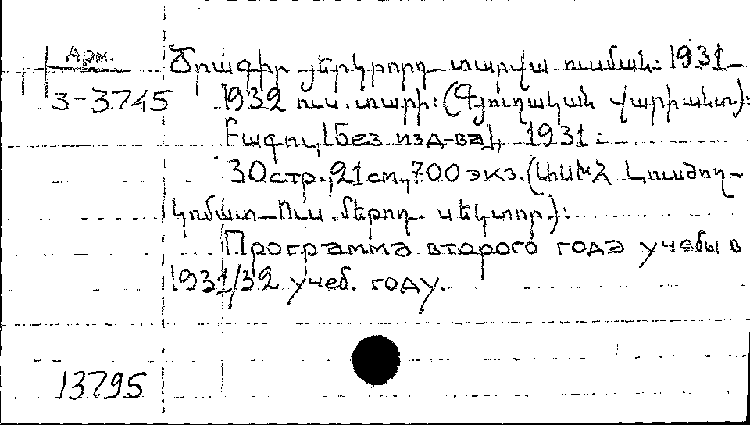 Арм.
3-3745
Ծրագիր յերկրորդ տարվա ուսման: 1931-
1932 ուս. տարի: (Գյուղական վարիանտ):
Բագու, [без изд-ва], 1931:
30 стр., 21 см, 700 экз. (ԱՍԽՀ Լուսժող-
կոմատ-Ուս. մեթոդ. սեկտոր):
Программа второго года учебы в
1931/32 учеб. году.
13795